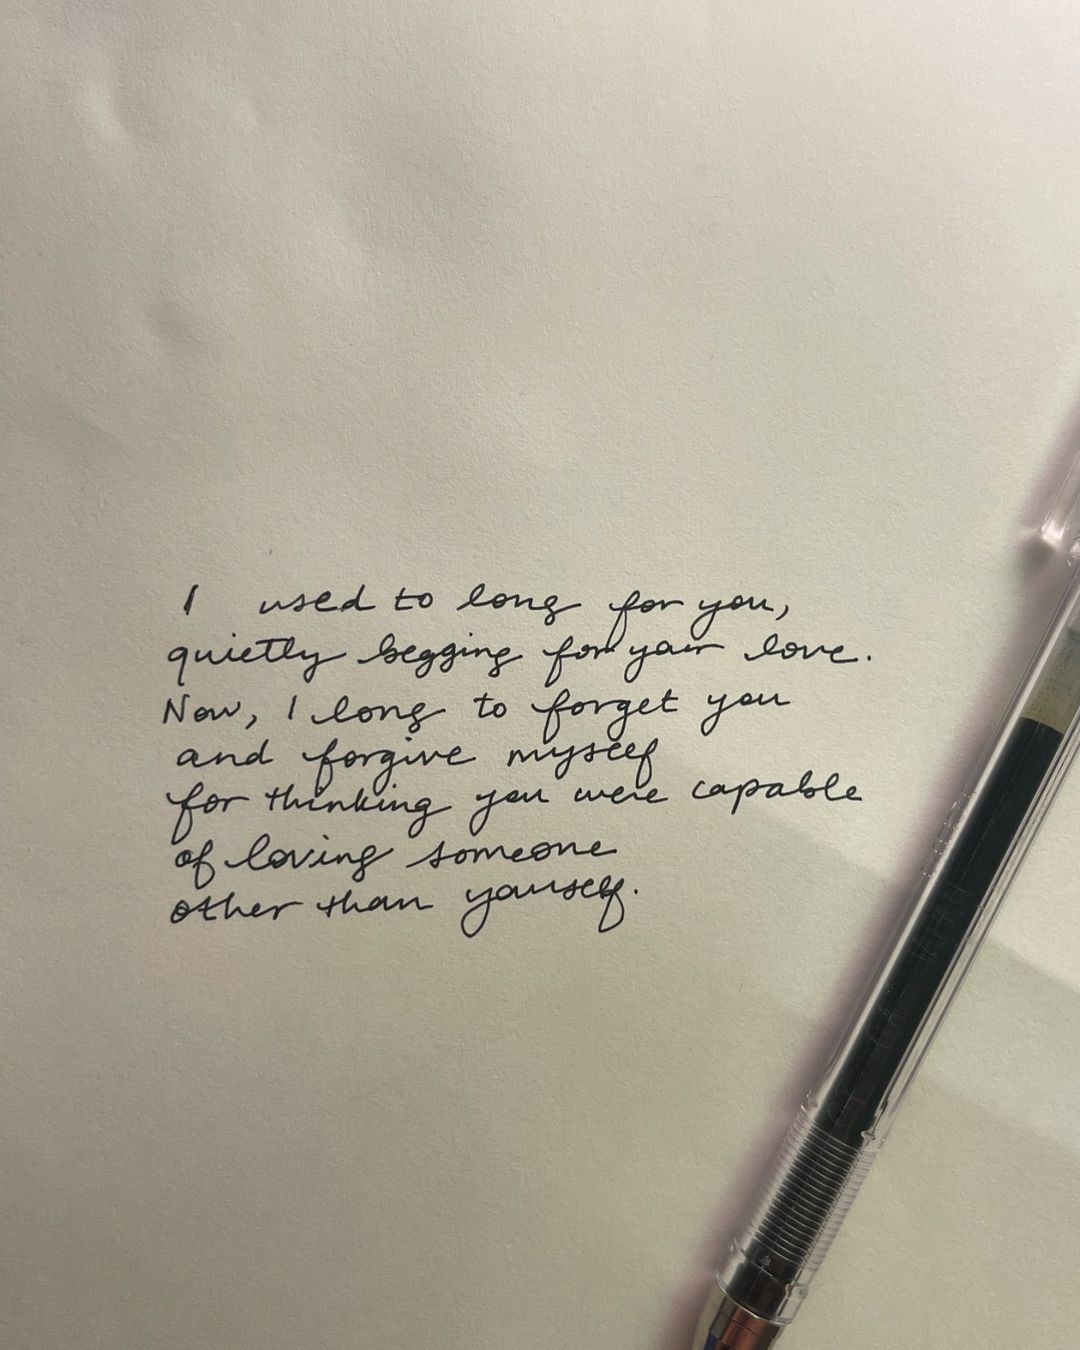 I used to long for you,
quietly begging for your love.
Now, I long to forget you
and forgive myself
for thinking you were capable
of loving someone
other than yourself.